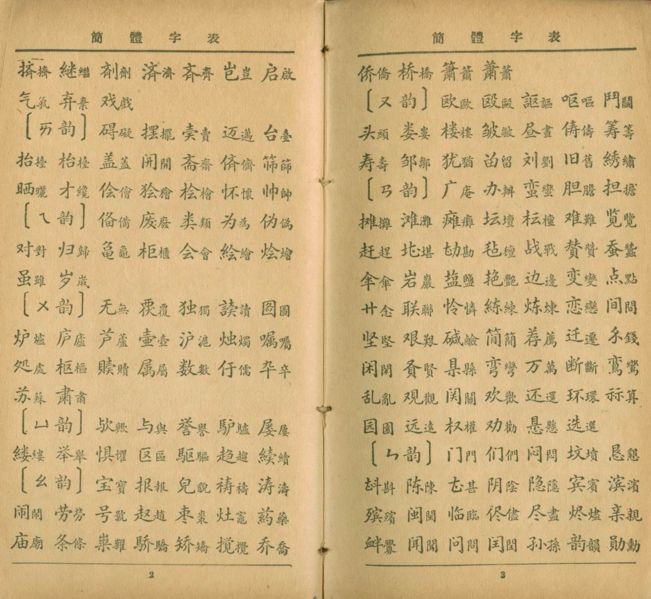 簡體字表
挤擠 继繼 剂劑 济濟 斉齊 岂豈 启啟
气氣 弃棄 戏戲
〔ㄞ韵〕 碍礙 摆擺 卖賣 迈邁 台臺
抬擡 枱檯 盖蓋 开開 斋齋 侪儕 筛篩
晒曬 才纔 侩儈 狯獪 桧檜 怀懷 帅帥
〔ㄟ韵〕 俻備 废廢 类類 为爲 伪僞
对對 归歸 亀龜 柜櫃 会會 絵繪 烩燴
虽雖 岁歲
〔ㄨ韵〕 无無 覆 独獨 读讀 図圖
炉爐 庐廬 芦蘆 壶壺 沪滬 烛燭 嘱囑
処處 枢樞 赎贖 属屬 数數 伃儒 卆卒
苏蘇 肃肅
〔ㄩ韵〕 欤歟 与與 誉譽 驴驢 屡屢
缕縷 举舉 惧懼 区區 駆驅 趋趨 续續
〔ㄠ韵〕 宝寶 报報 皃貌 祷禱 涛濤
闹鬧 劳勞 号號 赵趙 枣棗 灶竈 药藥
庙廟 条條 粜糶 骄驕 矫矯 搅攪 乔喬
2
簡體字表
侨僑 桥橋 箫簫 萧蕭
〔ㄡ韵〕 欧歐 殴毆 讴謳 呕嘔 鬥鬭
头頭 娄婁 楼樓 皱皺 昼晝 俦儔 筹籌
寿壽 邹鄒 犹猶 畄留 刘劉 旧舊 绣繡
〔ㄢ韵〕 广庵 办辦 蛮蠻 胆膽 担擔
摊攤 滩灘 瘫癱 坛壇 枟檀 难難 览覽
赶趕 堪 勘 毡氈 战戰 賛贊 蚕蠶
伞傘 岩巖 盐鹽 艳豔 边邊 变變 点點
廿念 联聯 怜憐 練練 炼煉 恋戀 间間
坚堅 艰艱 碱鹼 简簡 荐薦 迁遷 錢
闲閑 贤賢 县縣 弯彎 万萬 断斷 鸾鸞
乱亂 观觀 関關 欢歡 还還 环環 祘算
园園 远遠 权權 劝勸 悬懸 选選
〔ㄣ韵〕 门門 们們 闷悶 坟墳 恳懇
斟 陈陳 甚 阴陰 隐隱 宾賓 滨濱
殡殯 闽閩 临臨 侭儘 尽盡 烬燼 亲親
衅釁 闻聞 问問 闰閏 孙孫 韵韻 勋勳
3